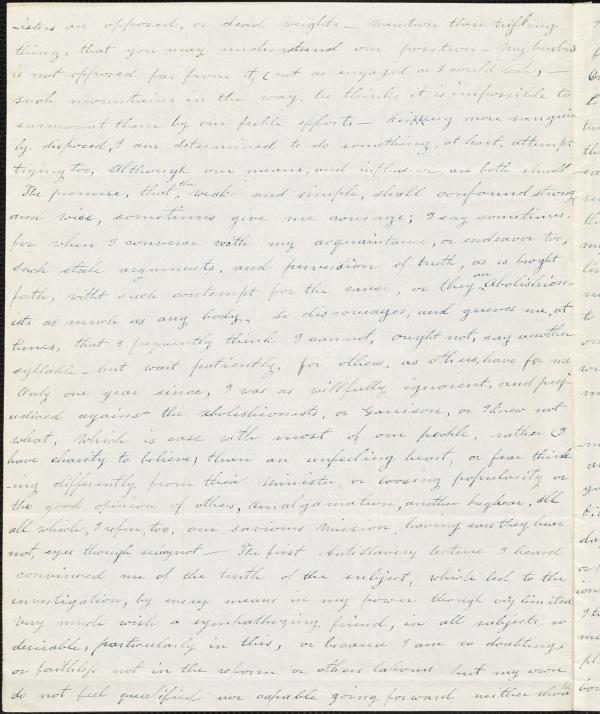 -isters on opposed, or dead weights - mention these trifling
things, that you may understand our position - My husband
is not opposed far from it, (not as engaged as I could wish) -
such mountains in the way, he thinks it is impossible to
surmount them by our feeble efforts - being more sanguin
ly disposed, I am determined to do something, at least, attempt
trying too, Although our means, and influence, are both small
The promise, that the weak and simple, shall confound strong
and wise, sometimes give me courage; I say sometimes.
for when I converse with my acquaintance, or endeavor too,
such stale arguments, and perversion of truth, as is brought
forth, witht such contempt for the cause, or they are abolishion-
ists as much as any body, so discourages, and grieves me, at
times, that I frequently think I cannot, ought not, say another
syllable - but wait patiently, for others, as others, have for me
Only one year since, I was as willfully ignorent, and prej-
udiced against the abolishionists, or Garrisons, or I knew not
what, Which is case with most of our people, rather (I
have charity to believe) than an unfeeling heart, or fear think
-ing differently from their Minister, or loosing popularity or
the good opinion of others, amalgamation, another bugbear, all
all which, I refer, too, our saviours mission, having ears they hear
not, eyes though see not - The first Antislavery lecture I heard
convinced me of the truth of the subject, which led to the
investigation, by every means in my power though very limited
Very much wish a sympathizing friend, in all subjects so
desirable, particularly in this, or because I am so doubting,
or faithless not in the reform or others labours but my own
do not feel qualified nor capable going forward neither should